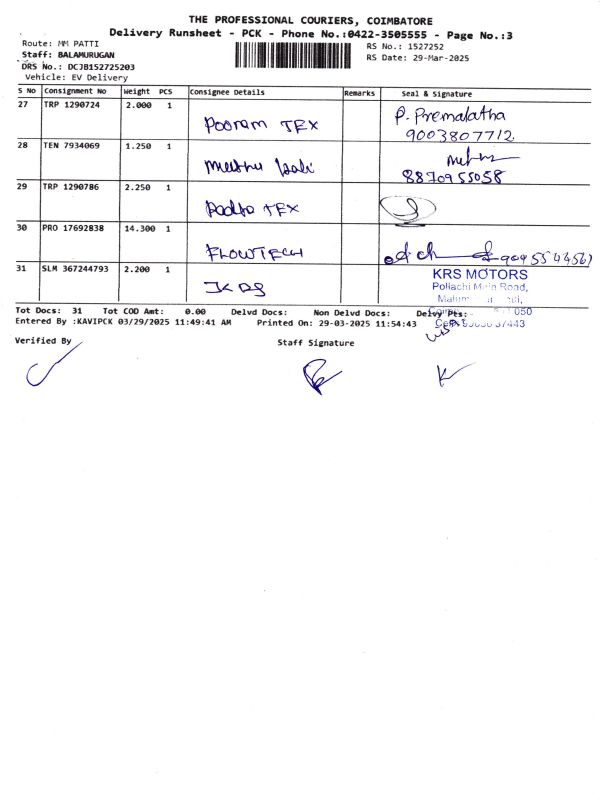 THE PROFESSIONAL COURIERS, COIMBATORE
Delivery Runsheet - PCK - Phone No.:0422-3505555 - Page No.:3
Route: MM PATTI
RS No.: 1527252
Staff: BALAMURUGAN
RS Date: 29-Mar-2025
DRS No.: DCJB152725203
Vehicle: EV Delivery
S No Consignment No Weight PCS Consignee Details Remarks Seal & Signature
27 TRP 1290724 2.000 1 Pooram TEX P. Premalatha
9003807712
28 TEN 7934069 1.250 1
8870955058
29 TRP 1290786 2.250 1 TEX
30 PRO 17692838 14.300 1 FLOWTECH
31 SLM 367244793 2.200 1 KRS MOTORS
Pollachi Main Road,
Tot Docs: 31 Tot COD Amt: 0.00 Delvd Docs: Non Delvd Docs: Delvy Pts:
Entered By :KAVIPCK 03/29/2025 11:49:41 AM Printed On: 29-03-2025 11:54:43
Verified By Staff Signature